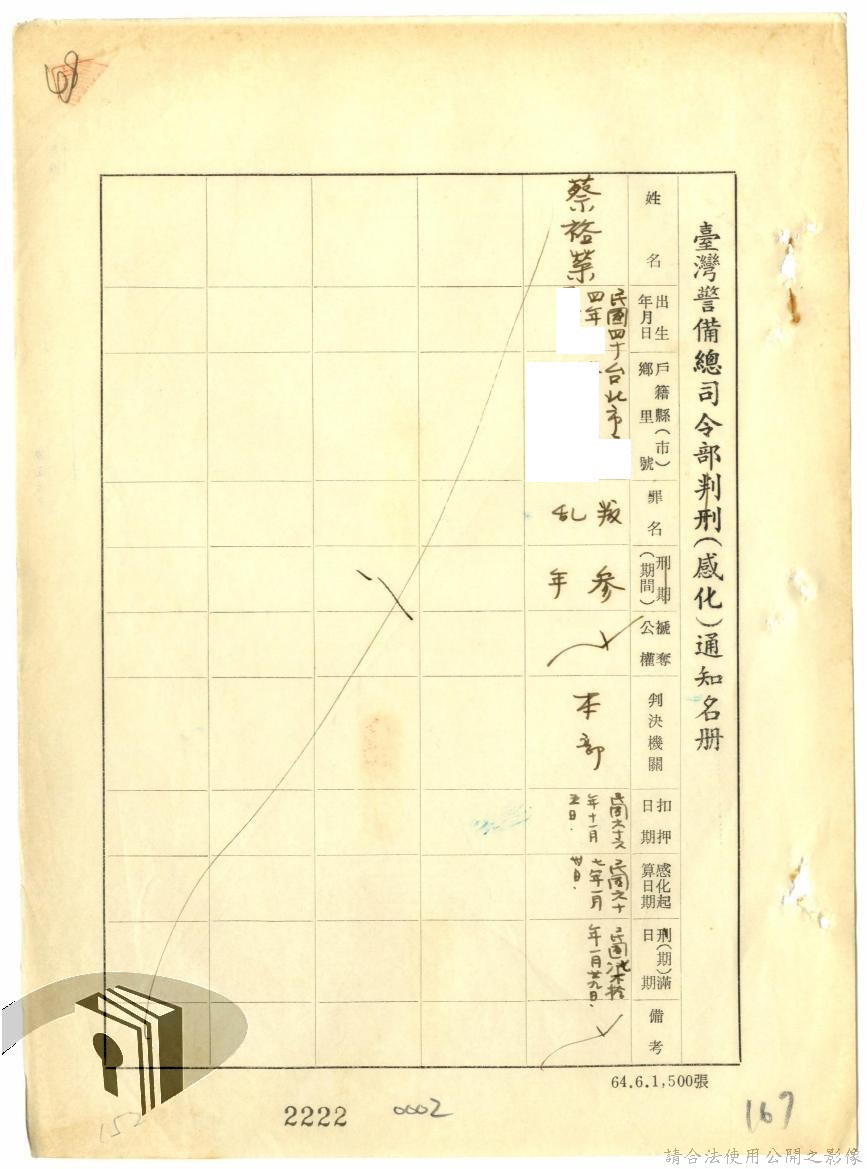 68
臺灣警備總司令部判刑(感化)通知名册
姓名
蔡裕榮
出生年月日
民國四十
四年
戶籍縣(市)
鄉里號
台北市
罪名
叛乱
刑期
(期間)
參年
褫奪
公權
判決機關
本部
扣押
日期
民國六十六
年十一月
五日.
感化起
算日期
民國六十
七年一月
廿日.
刑(期)滿
日期
民國
七拾
年一月廿九日.
備考
64.6.1,500張
2222
0002
167
152
請合法使用公開之影像